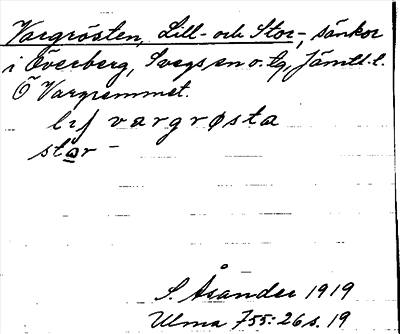 Vargrösten, Lill- och Stor-, sänkor
i Överberg, Svegs sn o. tg, Jämtl. l.
Ö Vargremmet.
lıſ vargrøsta
stor -
S. Åsander 1919
Ulma 755: 26 s. 19